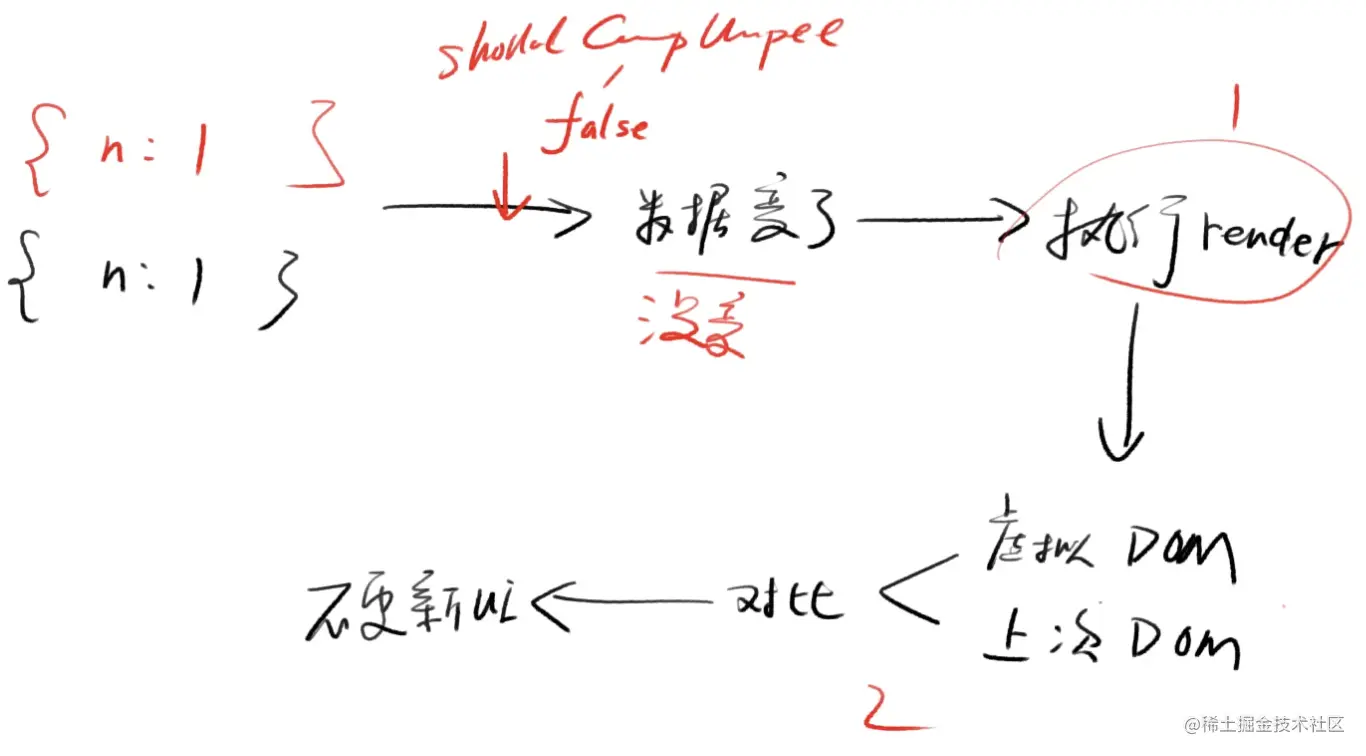 false
1
{ n: 1 }
数据变了
执行render
{ n: 1 }
没变
虚拟 DOM
不更新ui
对比
上次 DOM
2
@稀土掘金技术社区